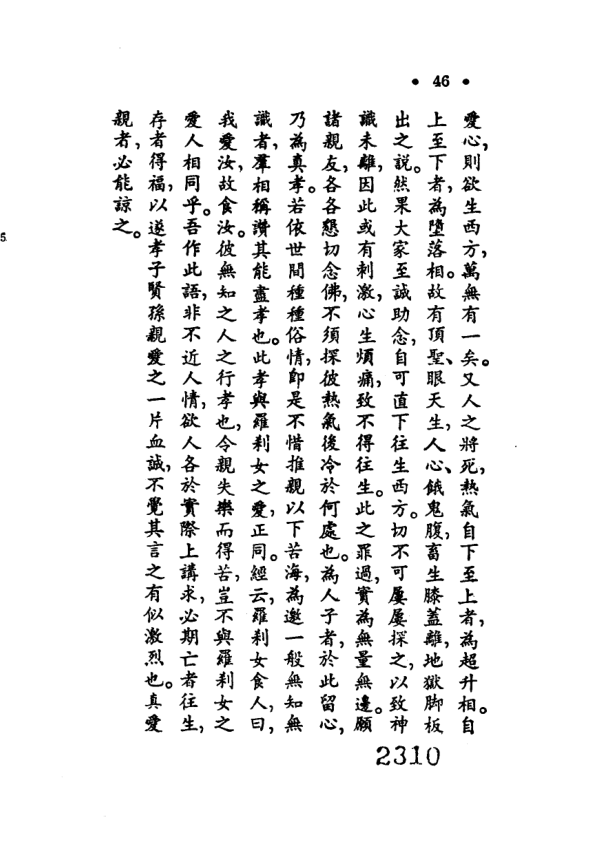 • 46 •
愛心，則欲生西方，萬無有一矣。又人之將死，熱氣自下至上者，為超升相。自
上至下者，為墮落相。故有頂聖、眼天生，人心、餓鬼腹，畜生膝蓋離，地獄脚板
出之說。然果大家至誠助念，自可直下往生西方。切不可屢屢探之，以致神
識未離，因此或有刺激，心生煩痛，致不得往生。此之罪過，實為無量無邊。願
諸親友，各各懇切念佛，不須探彼熱氣後冷於何處也。為人子者，於此留心，
乃為真孝。若依世間種種俗情，即是不惜推親以下苦海，為邀一般無知無
識者，羣相稱讚其能盡孝也。此孝與羅剎女之愛，正同。經云，羅剎女食人，曰，
我愛汝，故食汝。彼無知之人之行孝也，令親失樂而得苦，豈不與羅剎女之
愛人相同乎。吾作此語，非不近人情，欲人各於實際上講求，必期亡者往生，
存者得福，以遂孝子賢孫親愛之一片血誠，不覺其言之有似激烈也。真愛
親者，必能諒之。
5
2310